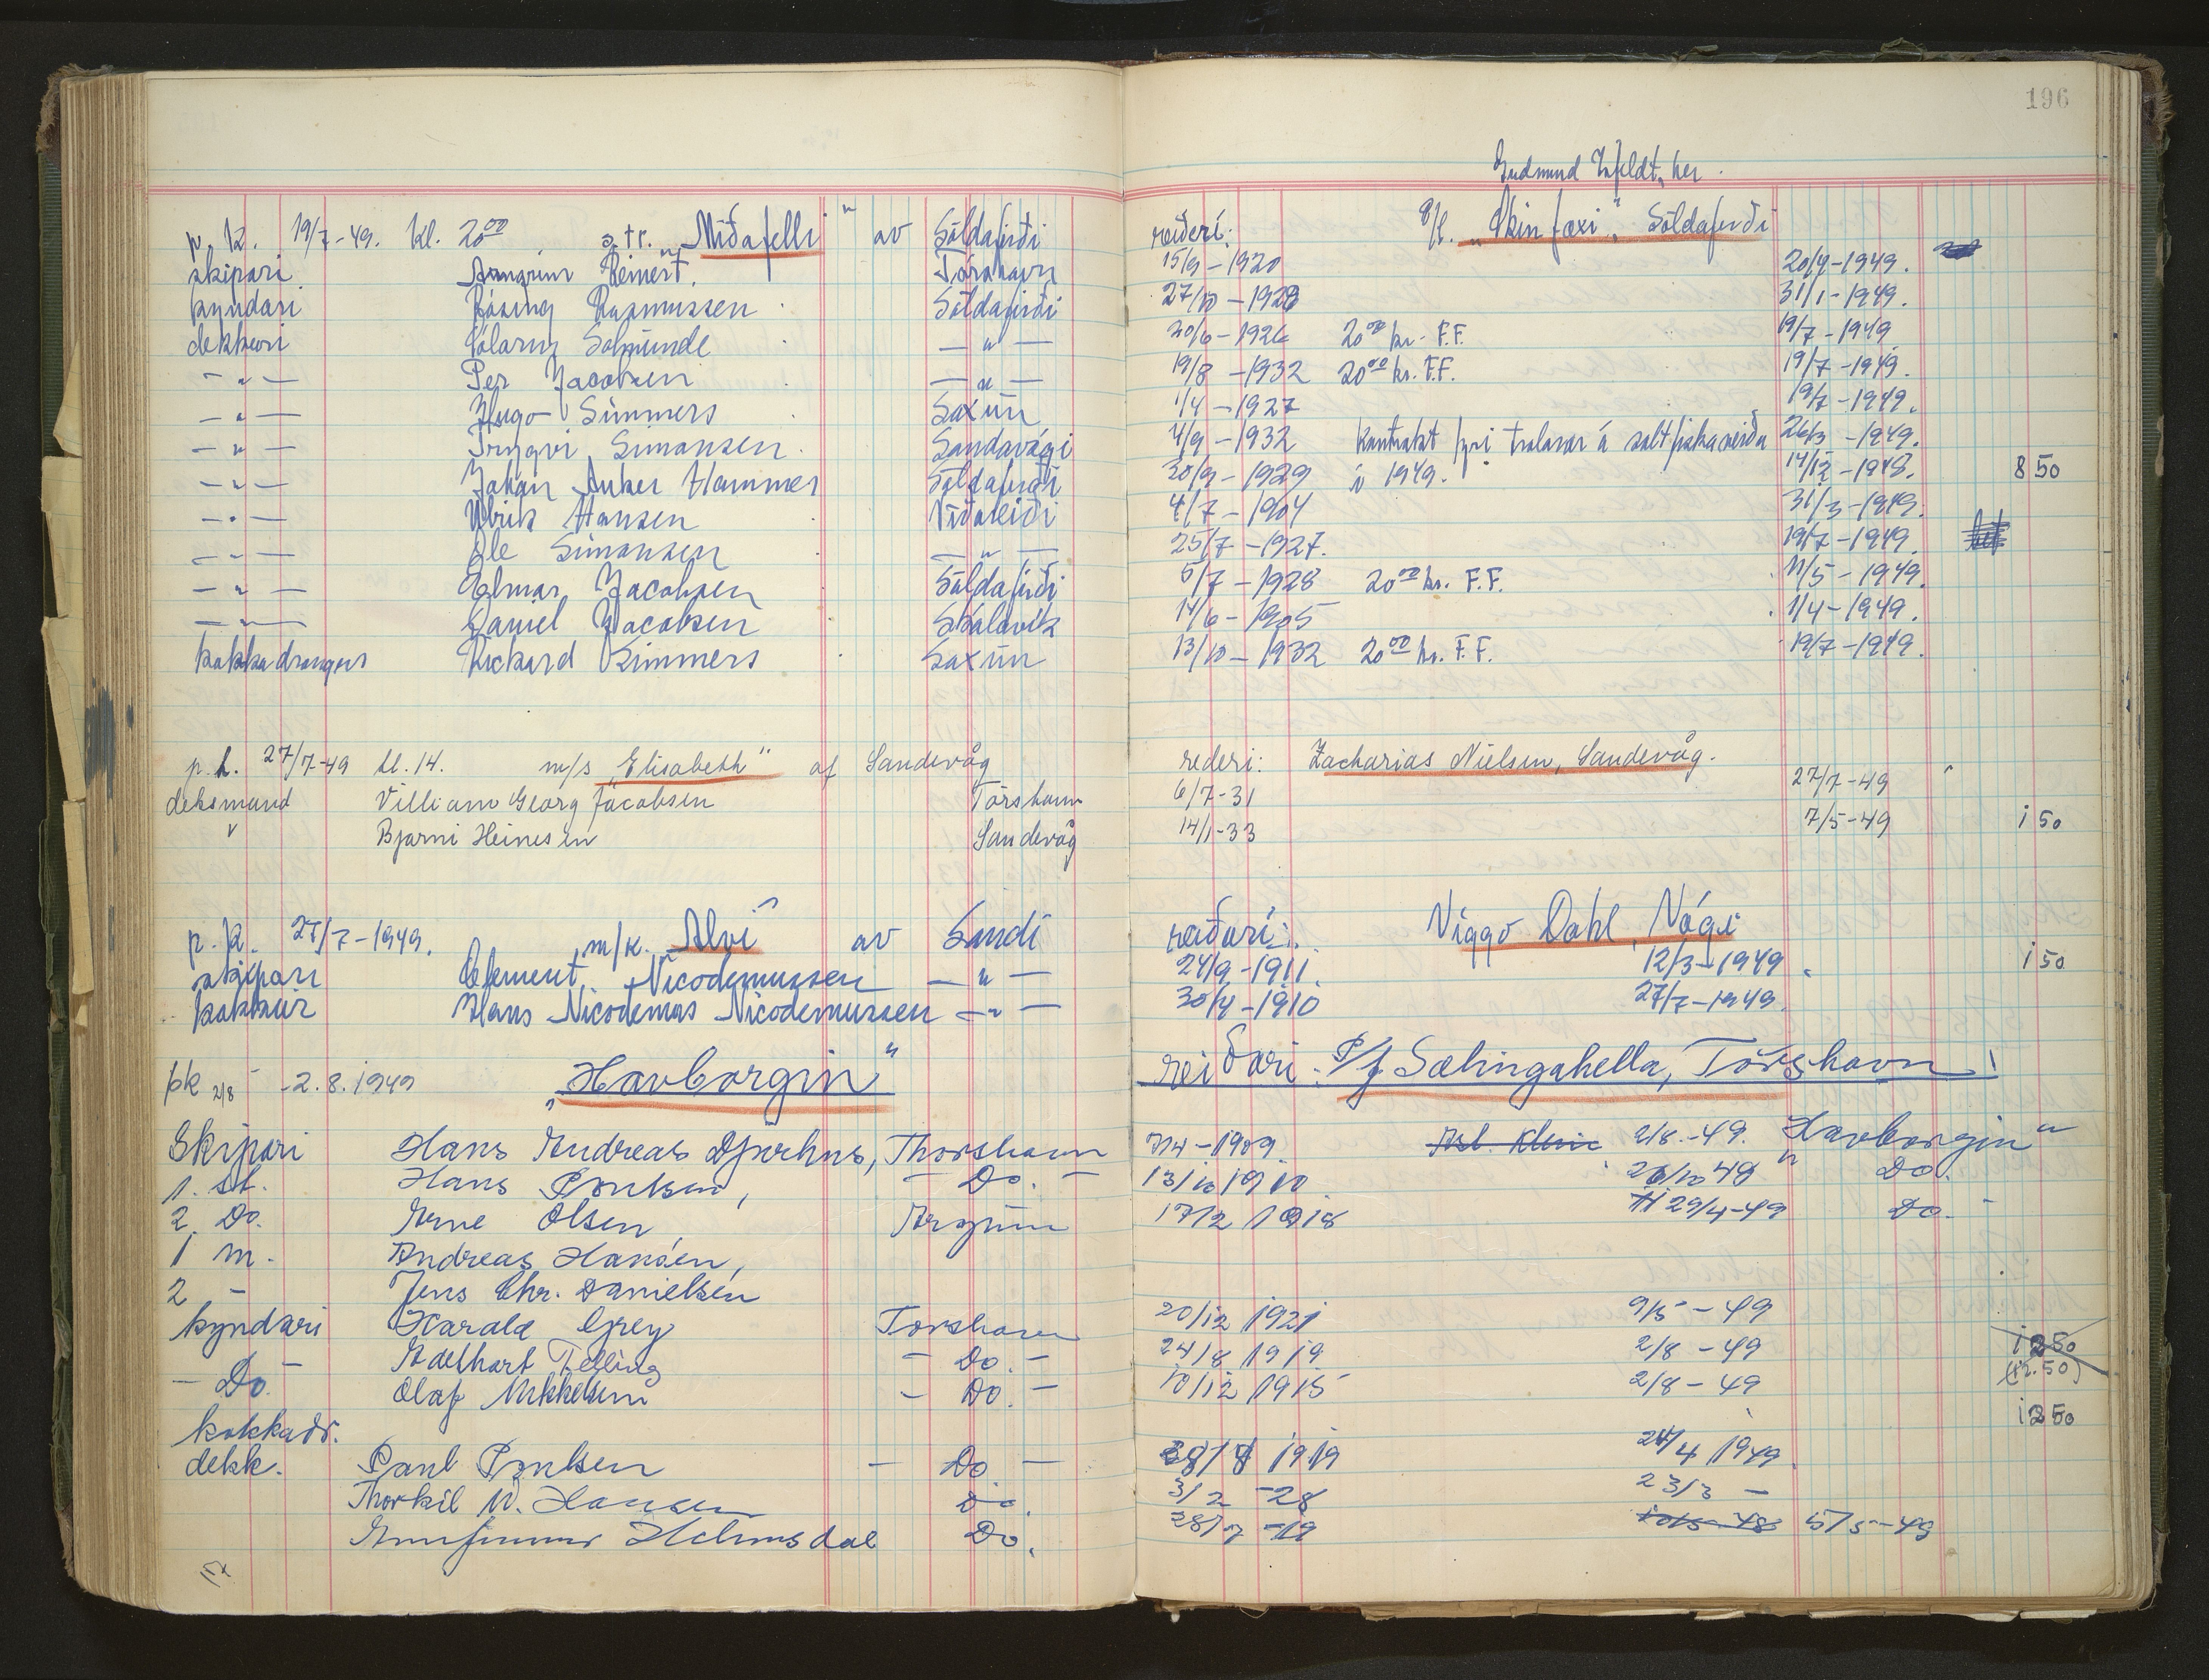 196
Gudmund Isfeldt, her.
p. k. 19/7-49. kl. 20⁰⁰ s.tr. „Miðafelli" av Söldafirði reiðari: p/f. „Skinfaxi", Söldafirði
skipari Arngrim Reinert. Tórshavn 15/9-1920 20/4-1949.
kyndari Rasmussen Söldafirði 27/10-1928 31/1-1949.
dekkari Sólarny Salmunde —"— 30/6-1926 20⁰⁰ kr. F.F. 19/7-1949
—"— Per Jacobsen —"— 19/8-1932 20⁰⁰ kr. F.F. 19/7-1949.
—"— Hugo Simmers Saxun 1/4-1927 19/7-1949.
—"— Tryggvi Simonsen. Sandavági 4/9-1932 Kontrakt fyri tralarar á saltfiskaveiðu 26/3-1949.
—"— Johan Anker Hammer Söldafirði 30/9-1929 í 1949. 14/12-1948. 8 50
—"— Ulrik Hansen Viðareiði 4/7-1904 31/3-1949.
—"— Ole Simonsen —"— 25/7-1927. 19/7-1949.
—"— Elmar Jacobsen Söldafirði 5/7-1928 20⁰⁰ kr. F.F. 11/5-1949.
—"— Daniel Jacobsen Skalavik 14/6-1905 1/4-1949.
kokkadrongur Rickard Simmers Saxun 13/10-1932 20⁰⁰ kr. F.F. 19/7-1949.
p.k. 27/7-49 kl. 14. m/s „Elisabeth" af Sandevåg rederi: Zacharias Nielsen, Sandevåg.
deksmand Villiam Georg Jacobsen Tórshavn 6/7-31 27/7-49
" Bjarni Heinesen Sandevåg 14/1-33 7/5-49 1 50
p. k. 27/7-1949. m/k. „Alvi" av Sandi reiðari: Viggo Dahl, Vági
skipari Clement Nicodemussen —"— 24/9-1911. 12/3-1949 1 50
kokkur Hans Nicodemas Nicodemussen —"— 30/4-1910 27/7-1949.
pk 2/8 - 2.8.1949 „Havborgin" reiðari: P/f Sælingahella, Tórshavn!
Skipari Hans Andreas Djurhus, Thorshavn 7/4-1909. 2/8.-49. „Havborgin"
1. st. Hans Poulsen, - Do. - 13/10 1910 26/10 48 Do.
2. Do. Arne Olsen Argum 17/2 1918 29/4-49 Do.
1 m. Andreas Hansen,
2 - Jens Chr. Danielsen
kyndari Harald Grey Torshavn 20/12 1921 9/5-49
Do. Adelhart Telling - Do. - 24/8 1919 2/8-49 12 50
- Do. Olaf Mikkelsen - Do. - 10/12 1915 2/8-49 (12.50)
kokkadr. 12 50
dekk. Paul Poulsen - Do - 28/8 1919 24/4 1949.
Thorkil W. Hansen Do. 3/2 -28 23/3 -
Gunfinnur Helmsdal Do. 28/7 -19 10/5-48 5/5-49